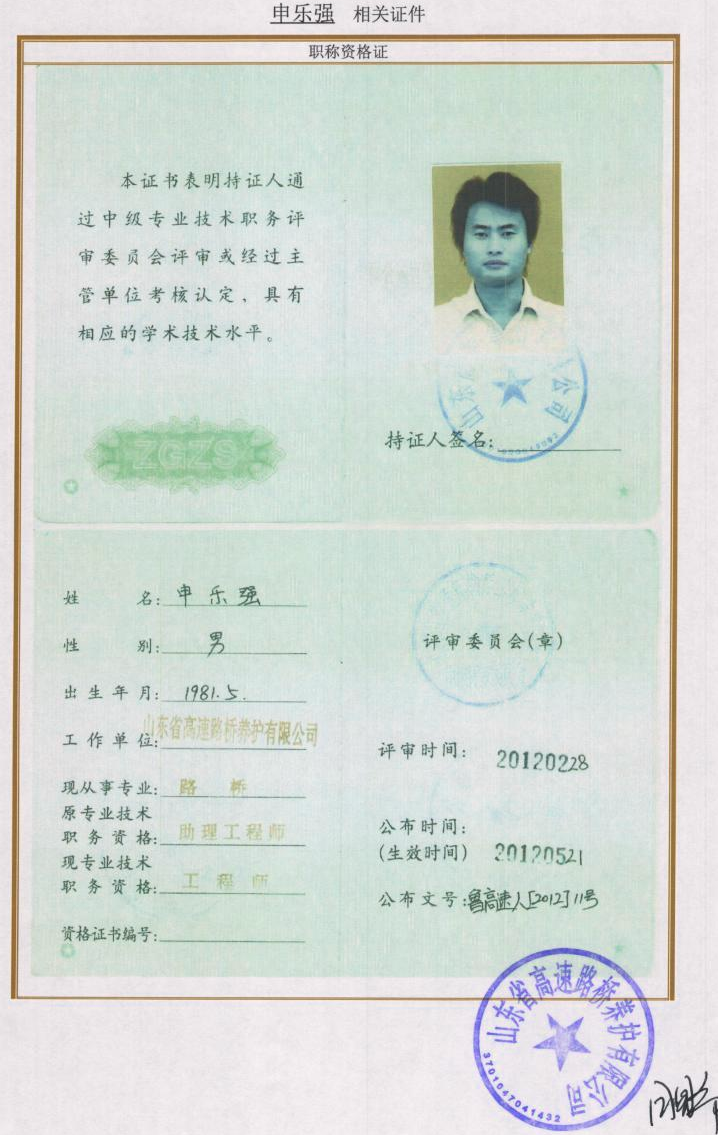 申乐强 相关证件
职称资格证
本证书表明持证人通
过中级专业技术职务评
审委员会评审或经过主
管单位考核认定，具有
相应的学术技术水平。
ZGZS
持证人签名:
姓 名: 申乐强
性 别: 男
出生年月: 1981.5.
工作单位: 山东省高速路桥养护有限公司
现从事专业: 路 桥
原专业技术
职务资格: 助理工程师
现专业技术
职务资格: 工 程 师
资格证书编号:
评审委员会(章)
评审时间: 20120228
公布时间:
(生效时间) 20120521
公布文号: 鲁高速人[2012]11号
山东省高速路桥养护有限公司
3701047041432